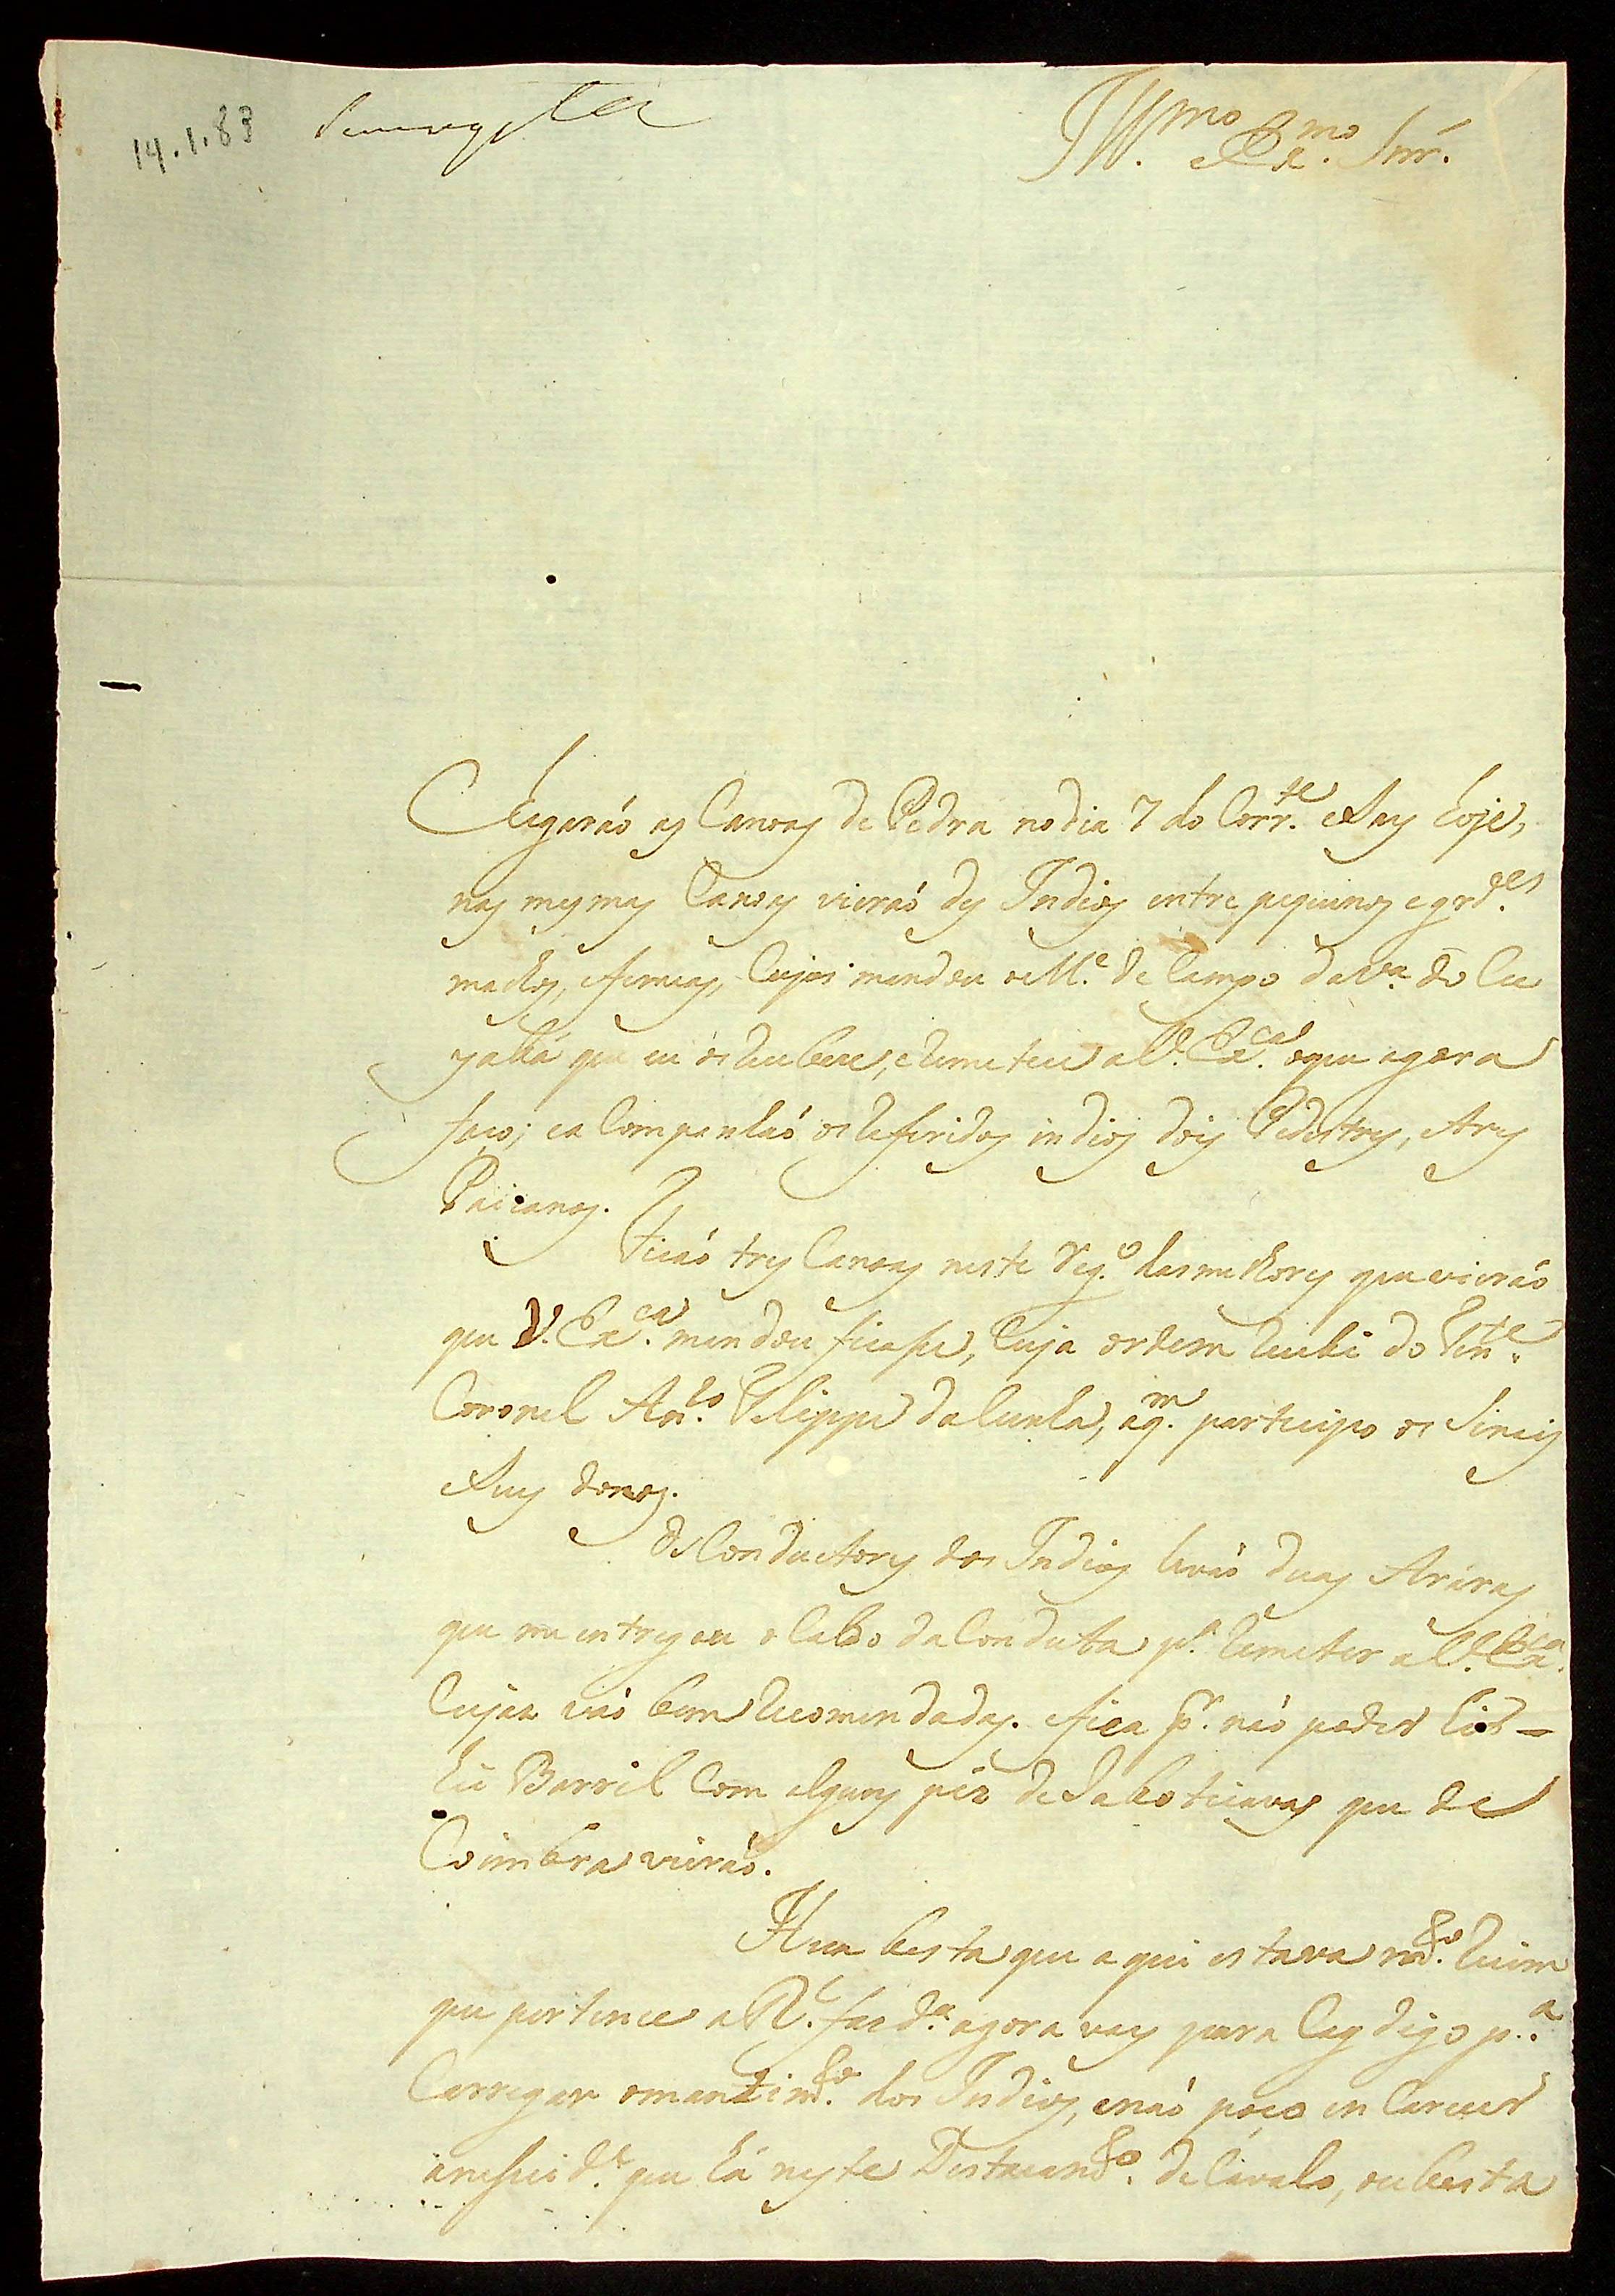 14.1.83
Ill.mo e Ex.mo Snr.
Chegarão as Canoas de Pedra no dia 7 do Corr.te e Ray hoje,
nas mesmas Canoas vierão des Indios entre pequinos e grd.es
machos, e femeas, Cujos mandou o M.e de Campo da V.a do Cu
yabá que eu os recebese, e remetese a V. Ex.ca o que agora
faço; e a Companhão os referidos indios dois Pedestres, e tres
Paizanos.
Ficão tres Canoas neste Reg.o das melhores que vierão
que V. Ex.ca mandou ficase, Cuja ordem recebi do Ten.te
Coronel An.to Felippe da Cunha, a q.m participo os Sinais
e seus donos.
Os Conductores dos Indios levão duas Araras
que me entregou o Cabo da Conduta p.a remeter a V. Ex.ca
Cujas vão bem recomendadas. e fica p.r não poder hir
hũ Barril Com alguns péz de Jaboticavas que de
Coimbra vierão.
Hua besta que aqui estava m.to ruim
que pertence a R.l faz d.a agora vay para Cas digo p.a
Carregar o mantim.to dos Indios, e não poço en Carecer
a nescid.e que há neste Destacam.to de Cavalo, ou besta